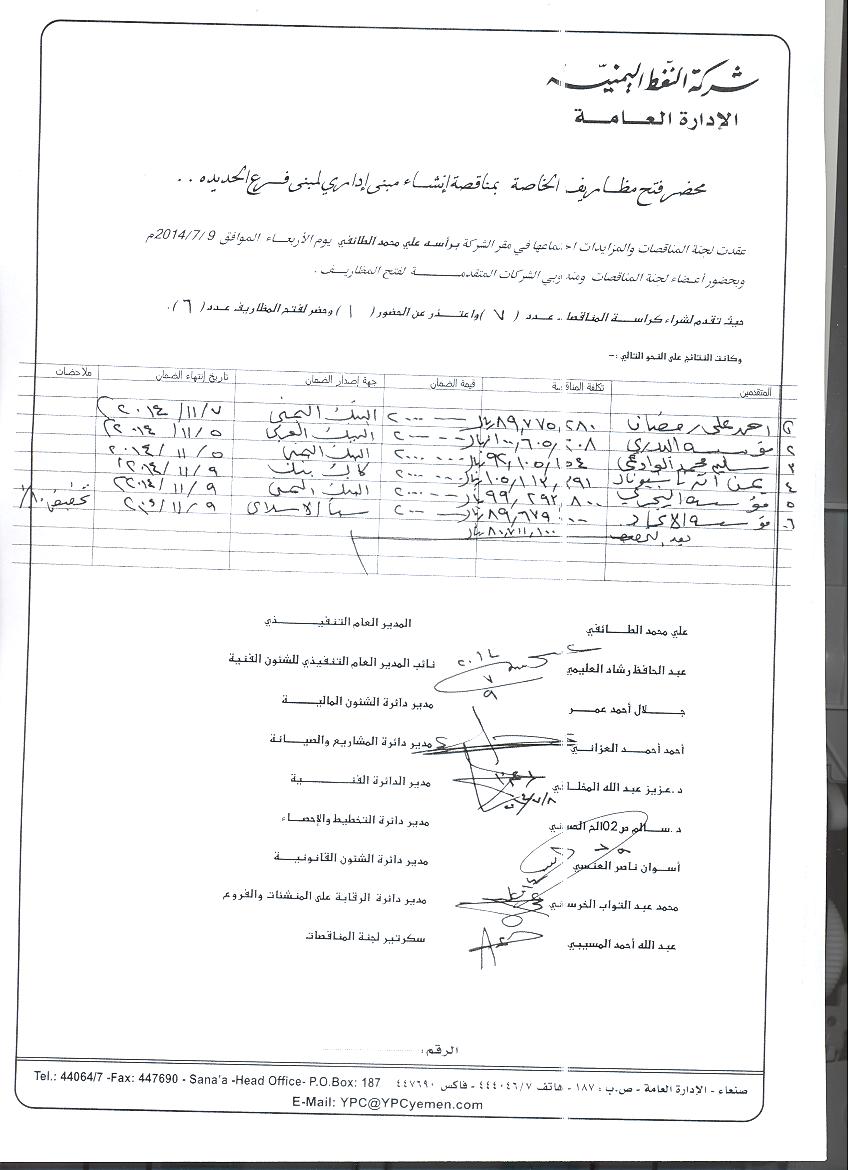 شركة النفط اليمنية
الإدارة العامة
محضر فتح مظاريف الخاصة بمناقصة إنشاء مبنى إداري لمبنى فرع الحديده ..
عقدت لجنة المناقصات والمزايدات اجتماعها في مقر الشركة برأسه علي محمد الطائفي يوم الأربعاء الموافق 2014/7/9م
وبحضور أعضاء لجنة المناقصات ومندوبي الشركات المتقدمة لفتح المظاريف .
حيث تقدم لشراء كراسة المناقصة عدد ( ٧ ) واعتذر عن الحضور ( ١ ) وحضر لفتح المظاريف عدد ( ٦ ).
وكانت النتائج على النحو التالي :-
المتقدمين تكلفة المناقصة قيمة الضمان جهة إصدار الضمان تاريخ إنتهاء الضمان ملاحضات
احمد علي رمضان ٨٩,٧٧٥,٢٨٠ ريال البنك اليمني ٢٠١٤/١١/٧
٢ مؤسسة البدري ريال البنك العربي ٢٠١٤/١١/٥
٣ سليم محمد الوادعي ريال البنك اليمني ٢٠١٤/١١/٥
٤ يمن انترناشيونال ريال كاك بنك ٢٠١٤/١١/٩
٥ مؤسسة ٩٩,٢٩٢,٨٠٠ ريال البنك اليمني ٢٠١٤/١١/٩
٦ مؤسسة ريال سبأ الاسلامي ٢٠١٤/١١/٩ تخفيض ١٠٪
بعد التخفيض ٨٠,٧١١,١٠٠ ريال
علي محمد الطائفي المدير العام التنفيذي
عبد الحافظ رشاد العليمي نائب المدير العام التنفيذي للشئون الفنية
جلال أحمد عمر مدير دائرة الشئون المالية
أحمد أحمد العزاني مدير دائرة المشاريع والصيانة
د.عزيز عبد الله المخلافي مدير الدائرة الفنية
د.سالم ص02الح مدير دائرة التخطيط والإحصاء
أسوان ناصر العنسي مدير دائرة الشئون القانونية
محمد عبد التواب الخرساني مدير دائرة الرقابة على المنشئات والفروع
عبد الله أحمد المسيبي سكرتير لجنة المناقصات
الرقم:
صنعاء - الإدارة العامة - ص.ب : ١٨٧ - هاتف ٤٤٤٠٤٦/٧ - فاكس ٤٤٧٦٩٠
Tel.: 44064/7 -Fax: 447690 - Sana'a -Head Office- P.O.Box: 187
E-Mail: YPC@YPCyemen.com